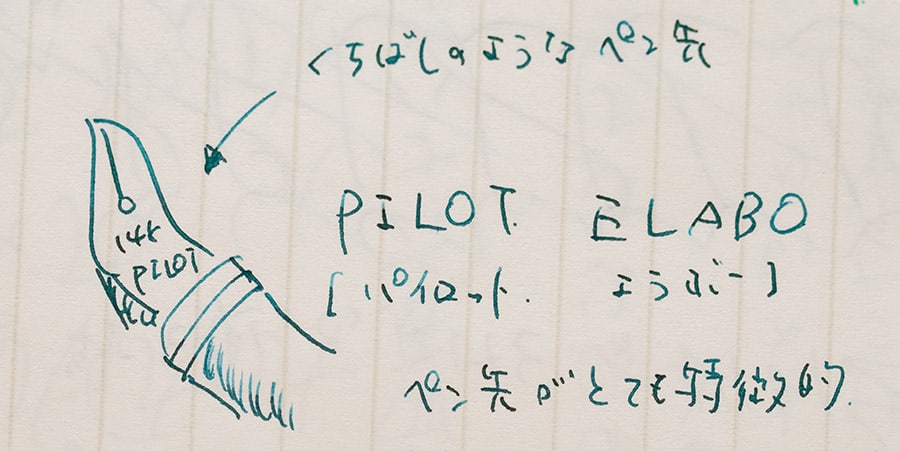 くちばしのようなペン先
14K
PILOT
PILOT ELABO
[パイロット. エラボー]
ペン先がとても特徴的.